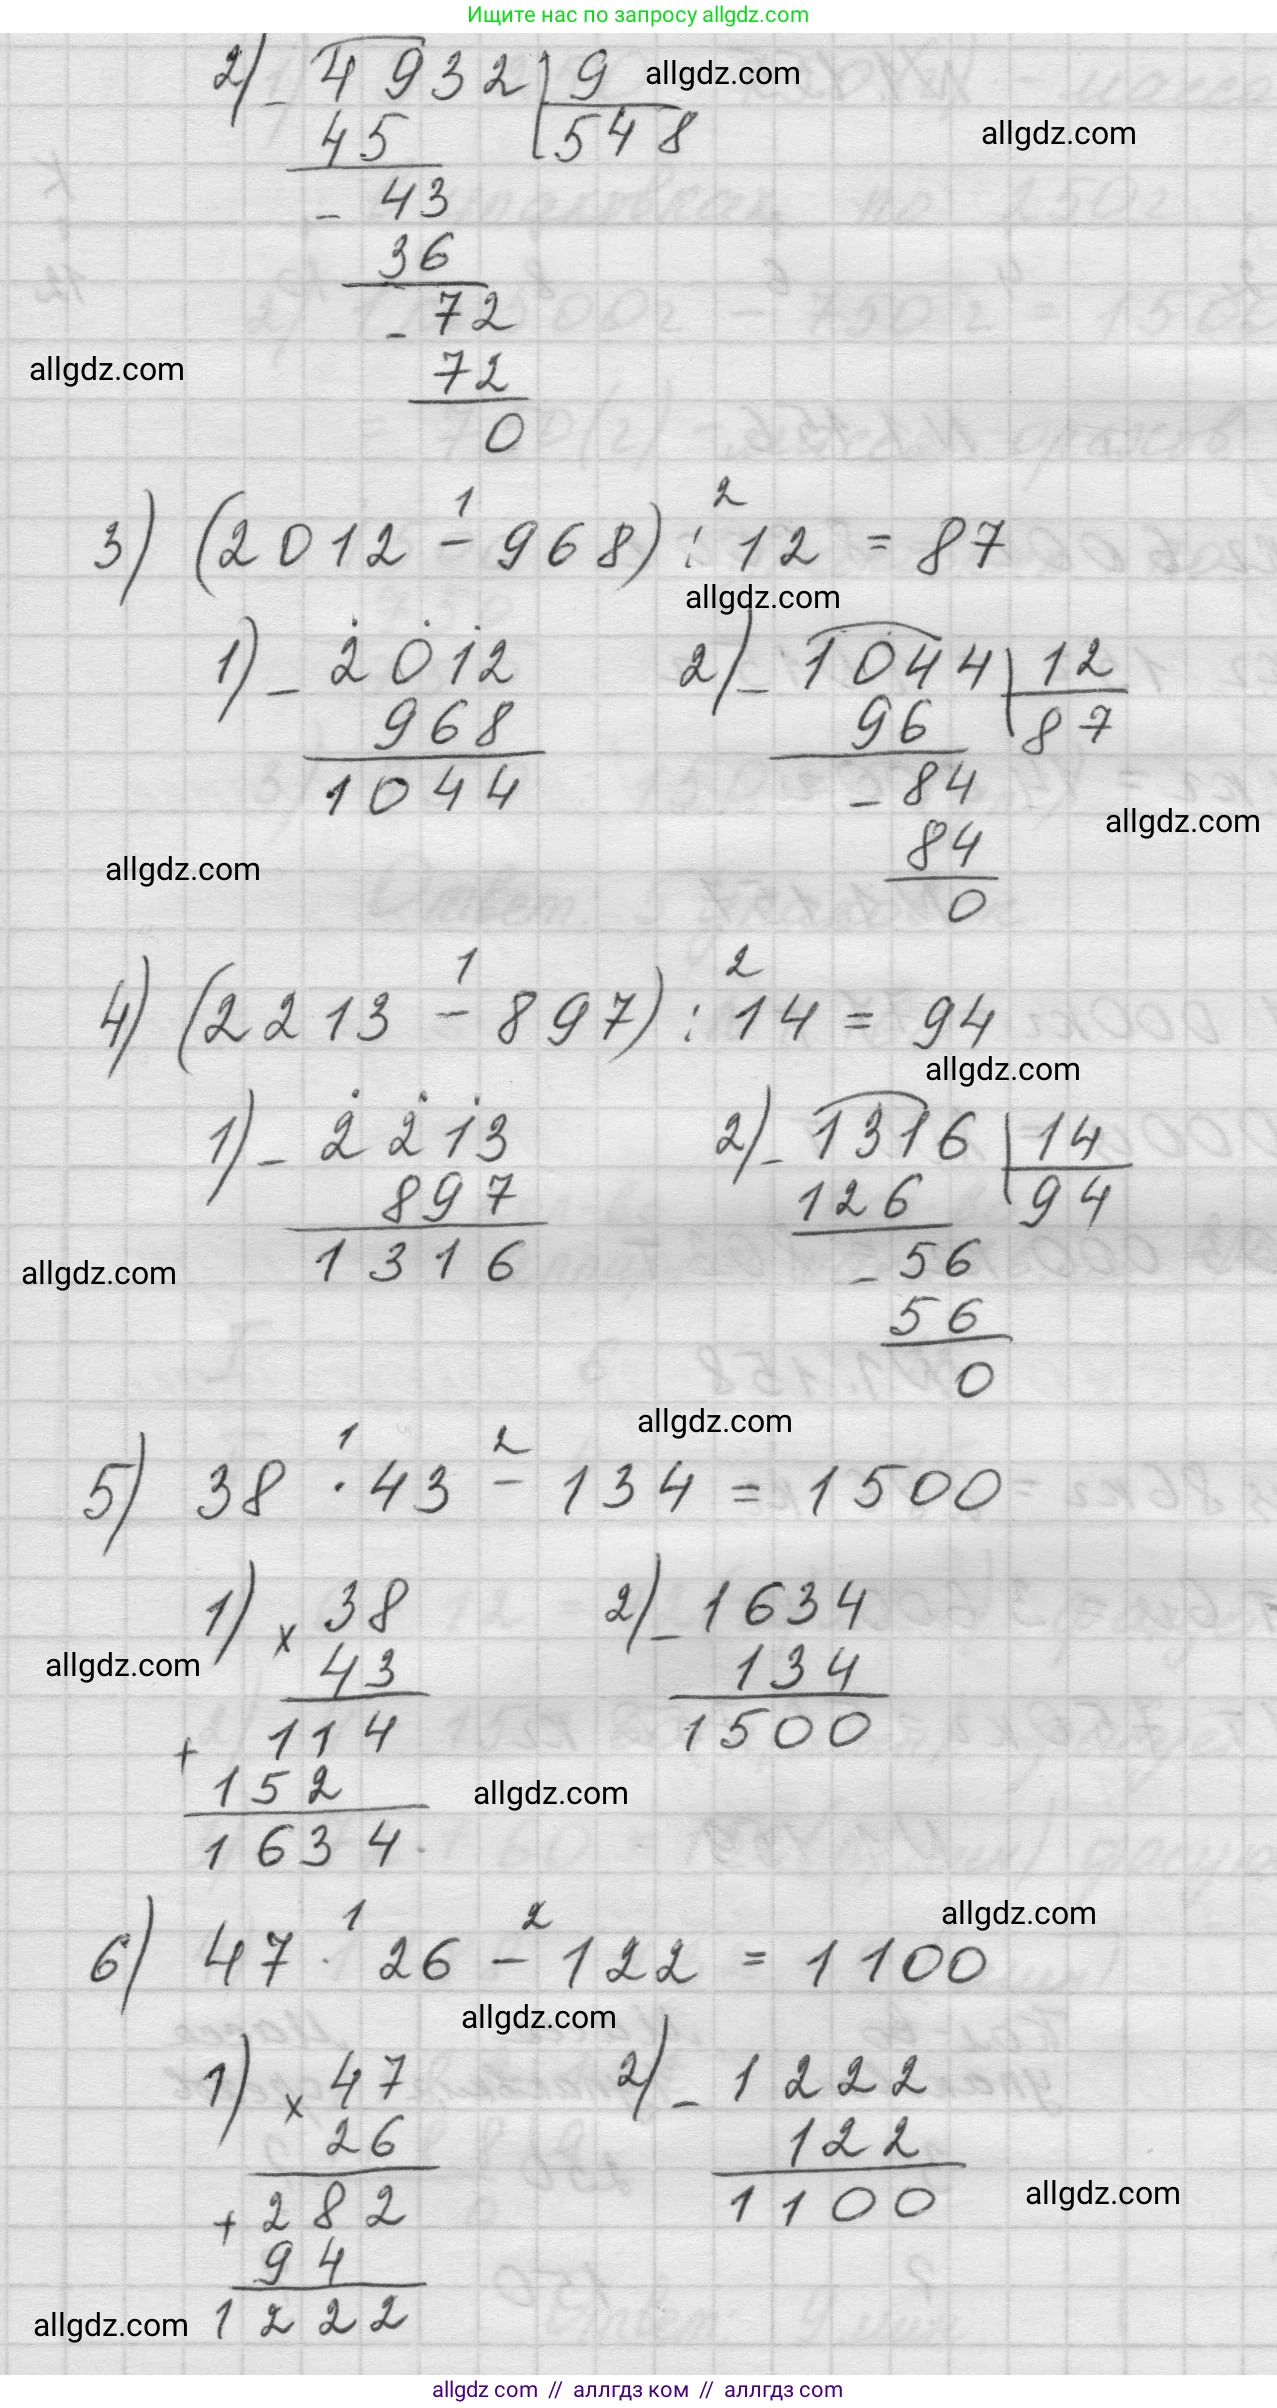 Ищите нас по запросу allgdz.com
2) - 4932 | 9
allgdz.com
45 548
allgdz.com
- 43
36
- 72
allgdz.com
72
0
1 2
3) (2012 - 968) : 12 = 87
allgdz.com
1) - 2012 2) - 1044 | 12
968 96 87
1044 - 84
allgdz.com
84
allgdz.com
0
1 2
4) (2213 - 897) : 14 = 94
allgdz.com
1) - 2213 2) - 1316 | 14
897 126 94
1316 - 56
allgdz.com
56
0
allgdz.com
1 2
5) 38 · 43 - 134 = 1500
1) x 38 2) - 1634
allgdz.com
43 134
+ 114 1500
152
allgdz.com
1634
allgdz.com
1 2
6) 47 · 26 - 122 = 1100
allgdz.com
1) x 47 2) - 1222
26 122
allgdz.com
+ 282 1100
94
allgdz.com
1222
allgdz com // аллгдз ком // аллгдз com